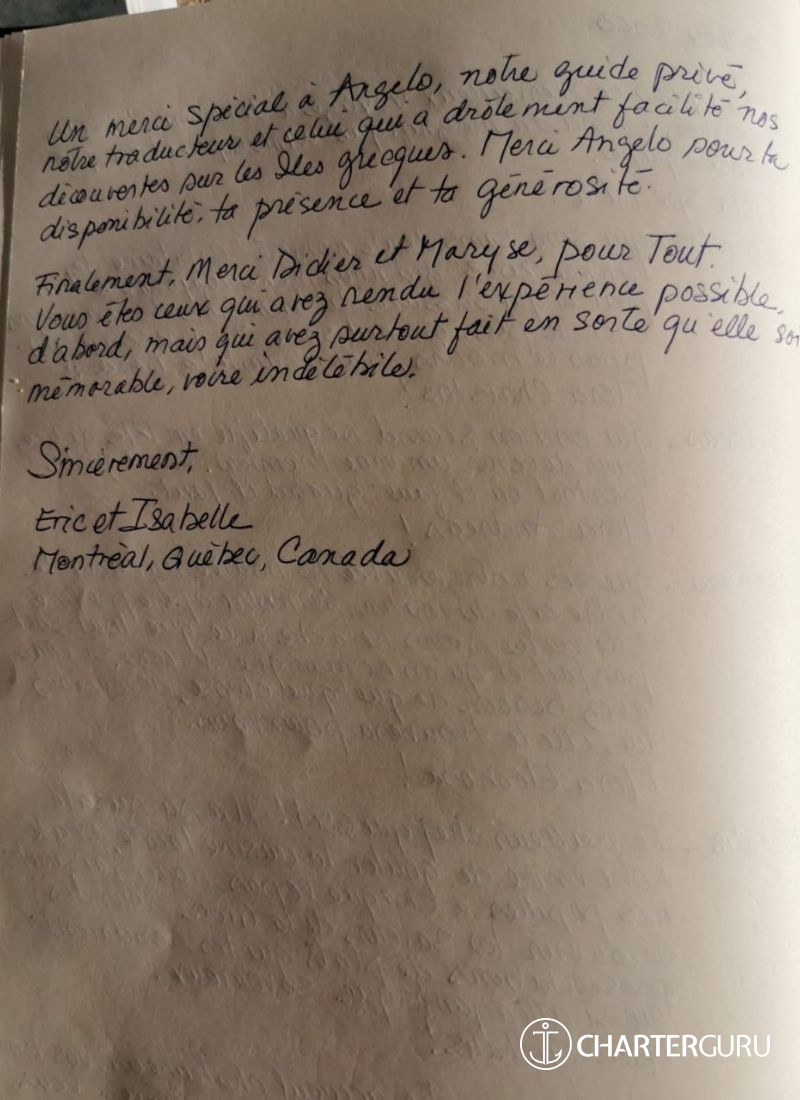 Un merci spécial à Angelo, notre guide privé,
notre traducteur et celui qui a drôlement facilité nos
découvertes sur les Iles grecques. Merci Angelo pour ta
disponibilité, ta présence et ta générosité.
Finalement, Merci Didier et Maryse, pour Tout.
Vous êtes ceux qui avez rendu l'expérience possible,
d'abord, mais qui avez surtout fait en sorte qu'elle soi
mémorable, voire indélébile.
Sincèrement,
Eric et Isabelle
Montréal, Québec, Canada
CHARTERGURU